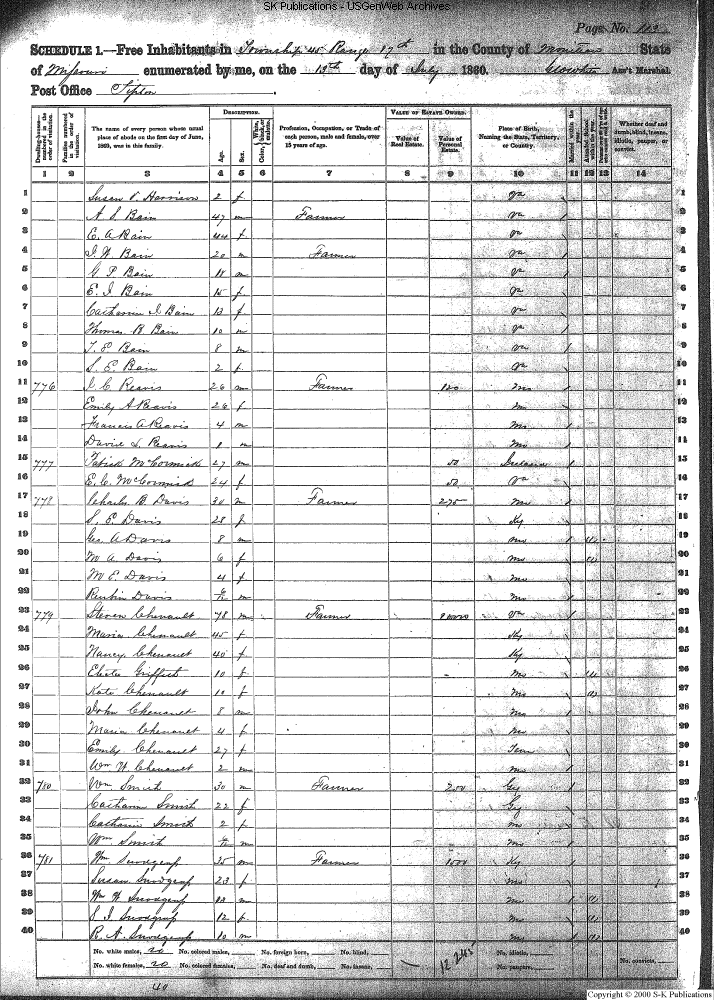 SK Publications - USGenWeb Archives
Page No. 112
SCHEDULE 1.—Free Inhabitants in Township 45 Range 17th in the County of Moniteau State
of Missouri enumerated by me, on the 13th day of July 1860. Ass't Marshal
Post Office Tipton
Dwelling-houses—numbered in the order of visitation.
Families numbered in the order of visitation.
The name of every person whose usual place of abode on the first day of June, 1860, was in this family.
DESCRIPTION.
Age.
Sex.
Color, White, black, or mulatto.
Profession, Occupation, or Trade of each person, male and female, over 15 years of age.
VALUE OF ESTATE OWNED.
Value of Real Estate.
Value of Personal Estate.
Place of Birth, Naming the State, Territory, or Country.
Married within the year.
Whether deaf and dumb, blind, insane, idiotic, pauper, or convict.
1 2 3 4 5 6 7 8 9 10 11 12 13 14
1 Susan V. Harrison 2 f Va 1
2 A. S. Bain 47 m Farmer Va 2
3 E. A Bain 44 f Va 3
4 J. W. Bain 20 m Farmer Va 4
5 G P Bain 18 m Va 5
6 E. J Bain 15 f Va 6
7 Catharin J Bain 13 f Va 7
8 Thomas B. Bain 10 m Va 8
9 T. E Bain 8 m Va 9
10 S. E. Bain 2 f Va 10
11 776 J. C Reavis 26 m Farmer 120 Mo 11
12 Emily A Reavis 26 f Mo 12
13 Francis A Reavis 4 m Mo 13
14 David S. Reavis 1 m Mo 14
15 777 Patrick McCormick 27 m 50 Ireland 15
16 E. C. McCormick 24 f 50 Va 16
17 778 Charles B. Davis 30 m Farmer 275 Mo 17
18 S. E. Davis 28 f Ky 18
19 Geo. A Davis 8 m Mo 19
20 M A Davis 6 f Mo 20
21 M E. Davis 4 f Mo 21
22 Reubin Davis m Mo 22
23 779 Steven Chenault 78 m Farmer Va 23
24 Maria Chenault 45 f Ky 24
25 Nancy Chenault 40 f Ky 25
26 Griffith 10 f Mo 26
27 Kate Chenault 10 f Mo 27
28 John Chenault 8 m Mo 28
29 Maria Chenault 4 f Mo 29
30 Emily Chenault 27 f Tenn 30
31 Wm H Chenault 2 m Mo 31
32 780 Wm Smith 30 m Farmer 200 32
33 Catharin Smith 22 f 33
34 Catharin Smith 2 f Mo 34
35 Wm Smith m Mo 35
36 781 Wm Snodgrass 35 m Farmer 1500 Ky 36
37 Susan Snodgrass 23 f Mo 37
38 Wm W Snodgrass m Mo 38
39 S J Snodgrass 12 f Mo 39
40 R. A. Snodgrass 10 m Mo 40
No. white males, 20 No. colored males, No. foreign born, No. blind, No. idiotic,
No. white females, 20 No. colored females, No. deaf and dumb, No. insane, 12,245 No. paupers, No. convicts,
40
Copyright © 2000 S-K Publications